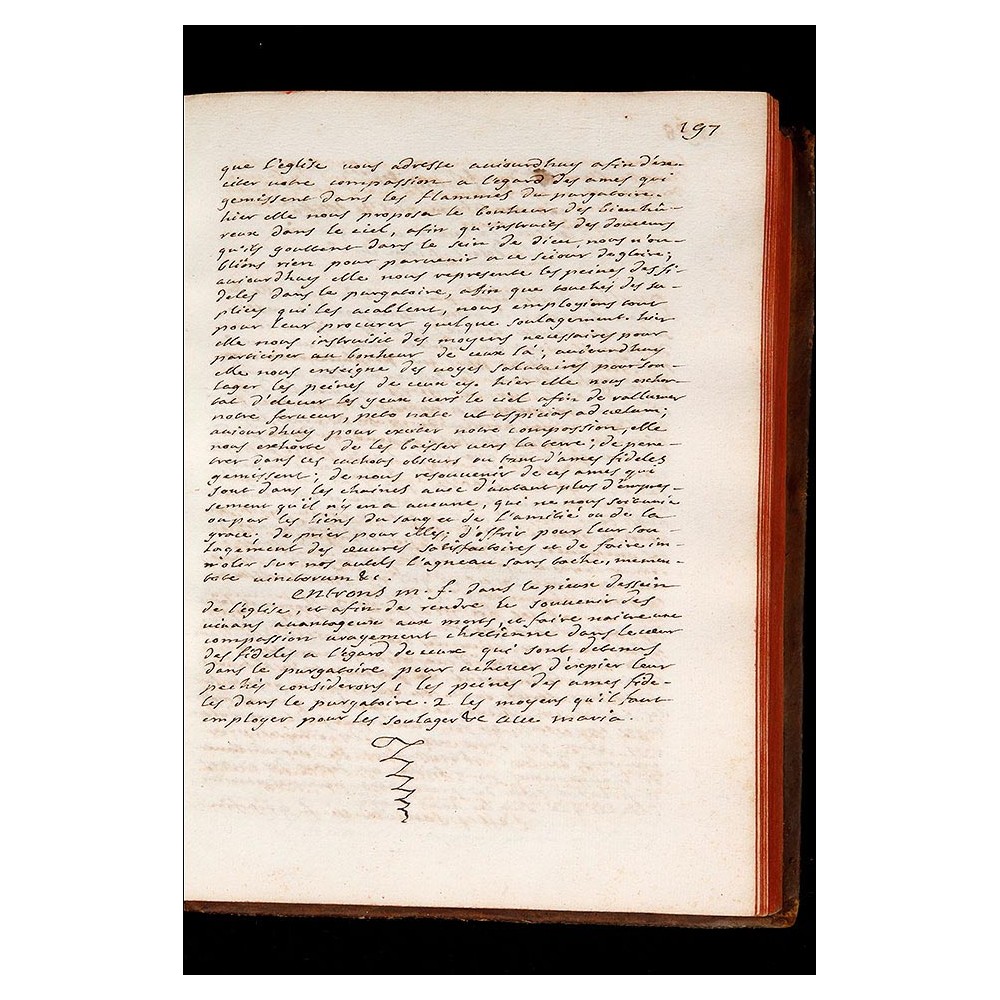 197
que l'eglise vous adresse aujourdhuy afin d'exci-
citer votre compassion a l'egard des ames qui
gemissent dans les flammes du purgatoire.
hier elle nous proposa le bonheur des bienhû-
reux dans le ciel, afin qu'instruits des douceurs
qu'ils gouttent dans le sein de dieu, nous n'ou-
blions rien pour parvenir a ce sejour de gloire;
aujourdhuy elle nous represente les peines des fi-
deles dans le purgatoire, afin que touchés des su-
plices qui les acablent, nous employions tout
pour leur procurer quelque soulagement. hier
elle nous instruisit des moyens necessaires pour
participer au bonheur de ceux là; aujourdhuy
elle nous enseigne des voyes salutaires pour sou-
lager les peines de ceux cy. hier elle nous exhor-
tat d'elever les yeux vers le ciel afin de rallumer
notre ferveur, peto nate ut aspicias ad coelum;
aujourdhuy pour exciter notre compassion, elle
nous exhorte de les baisser vers la terre; de pene-
trer dans ces cachots obscurs ou tant d'ames fideles
gemissent; de nous resouvenir de ces ames qui
sont dans les chaines avec d'autant plus d'empres-
sement qu'il n'y en a aucune, qui ne nous soit unie
ou par les liens du sang et de l'amitié ou de la
grace; de prier pour elles; d'offrir pour leur sou-
lagement des œuvres satisfactoires et de faire im-
moler sur nos autels l'agneau sans tache, memen-
tote vinctorum &c.
entrons m. f. dans le pieux dessein
de l'eglise, et afin de rendre le souvenir des
vivans avantageux aux morts, et faire naitre une
compassion vrayement chrêtienne dans le cœur
des fideles a l'égard de ceux qui sont detenus
dans le purgatoire pour achever d'expier leur
pechés considerons 1 les peines des ames fide-
les dans le purgatoire. 2 les moyens qu'il faut
employer pour les soulager &c ave maria.